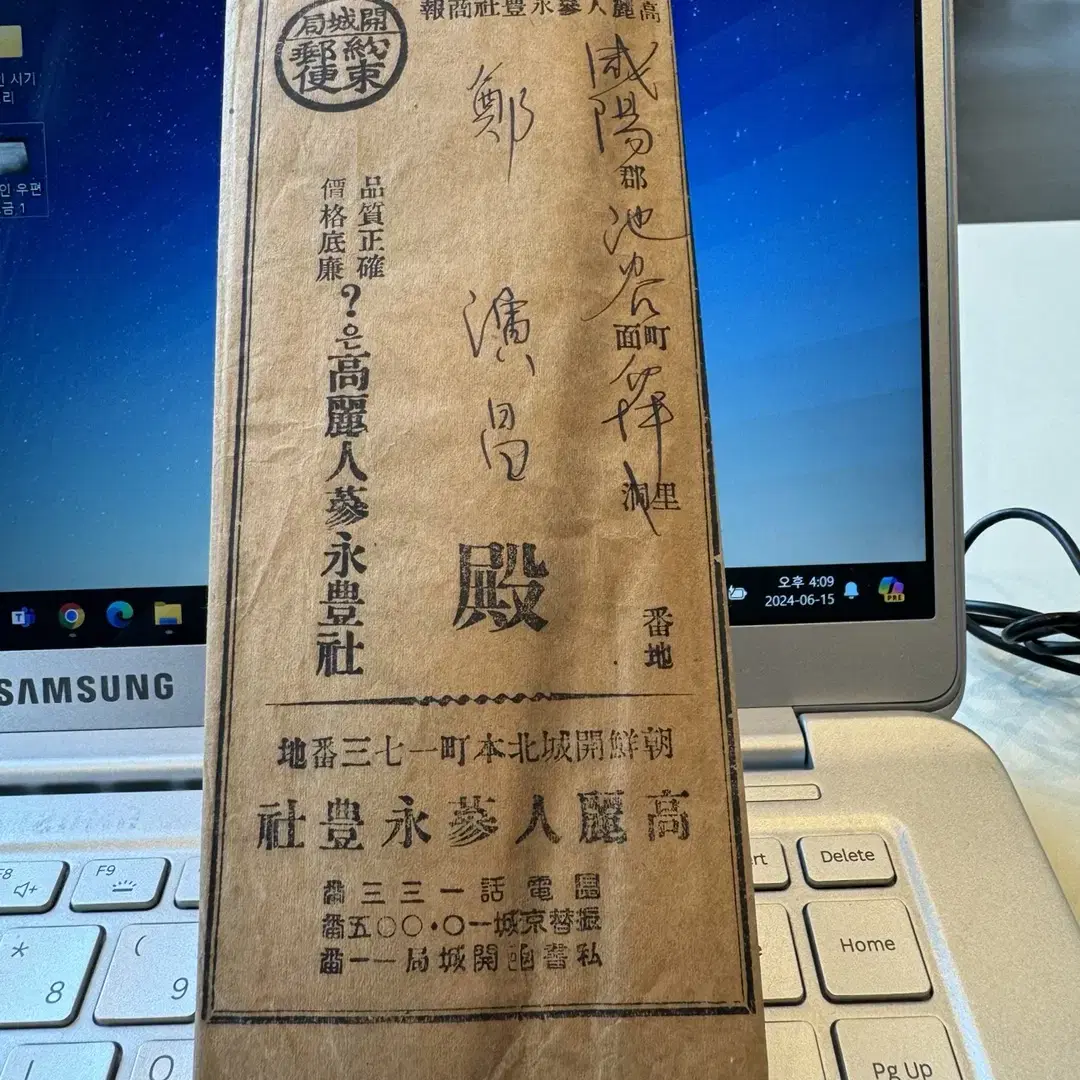 高麗人蔘永豊社商報
開城局
約束
郵便
咸陽郡池谷面町介坪洞里
番地
鄭 昌 殿
品質正確
價格底廉
?은高麗人蔘永豊社
朝鮮開城北本町一七三番地
高麗人蔘永豊社
電話一三三番
振替京城一〇・〇〇五番
私書凾開城局一一番
인 시기
리
인 우편
금 1
오후 4:09
2024-06-15
PRE
SAMSUNG
F8
F9
Delete
Home
Pg Up
*
8
(
9
O